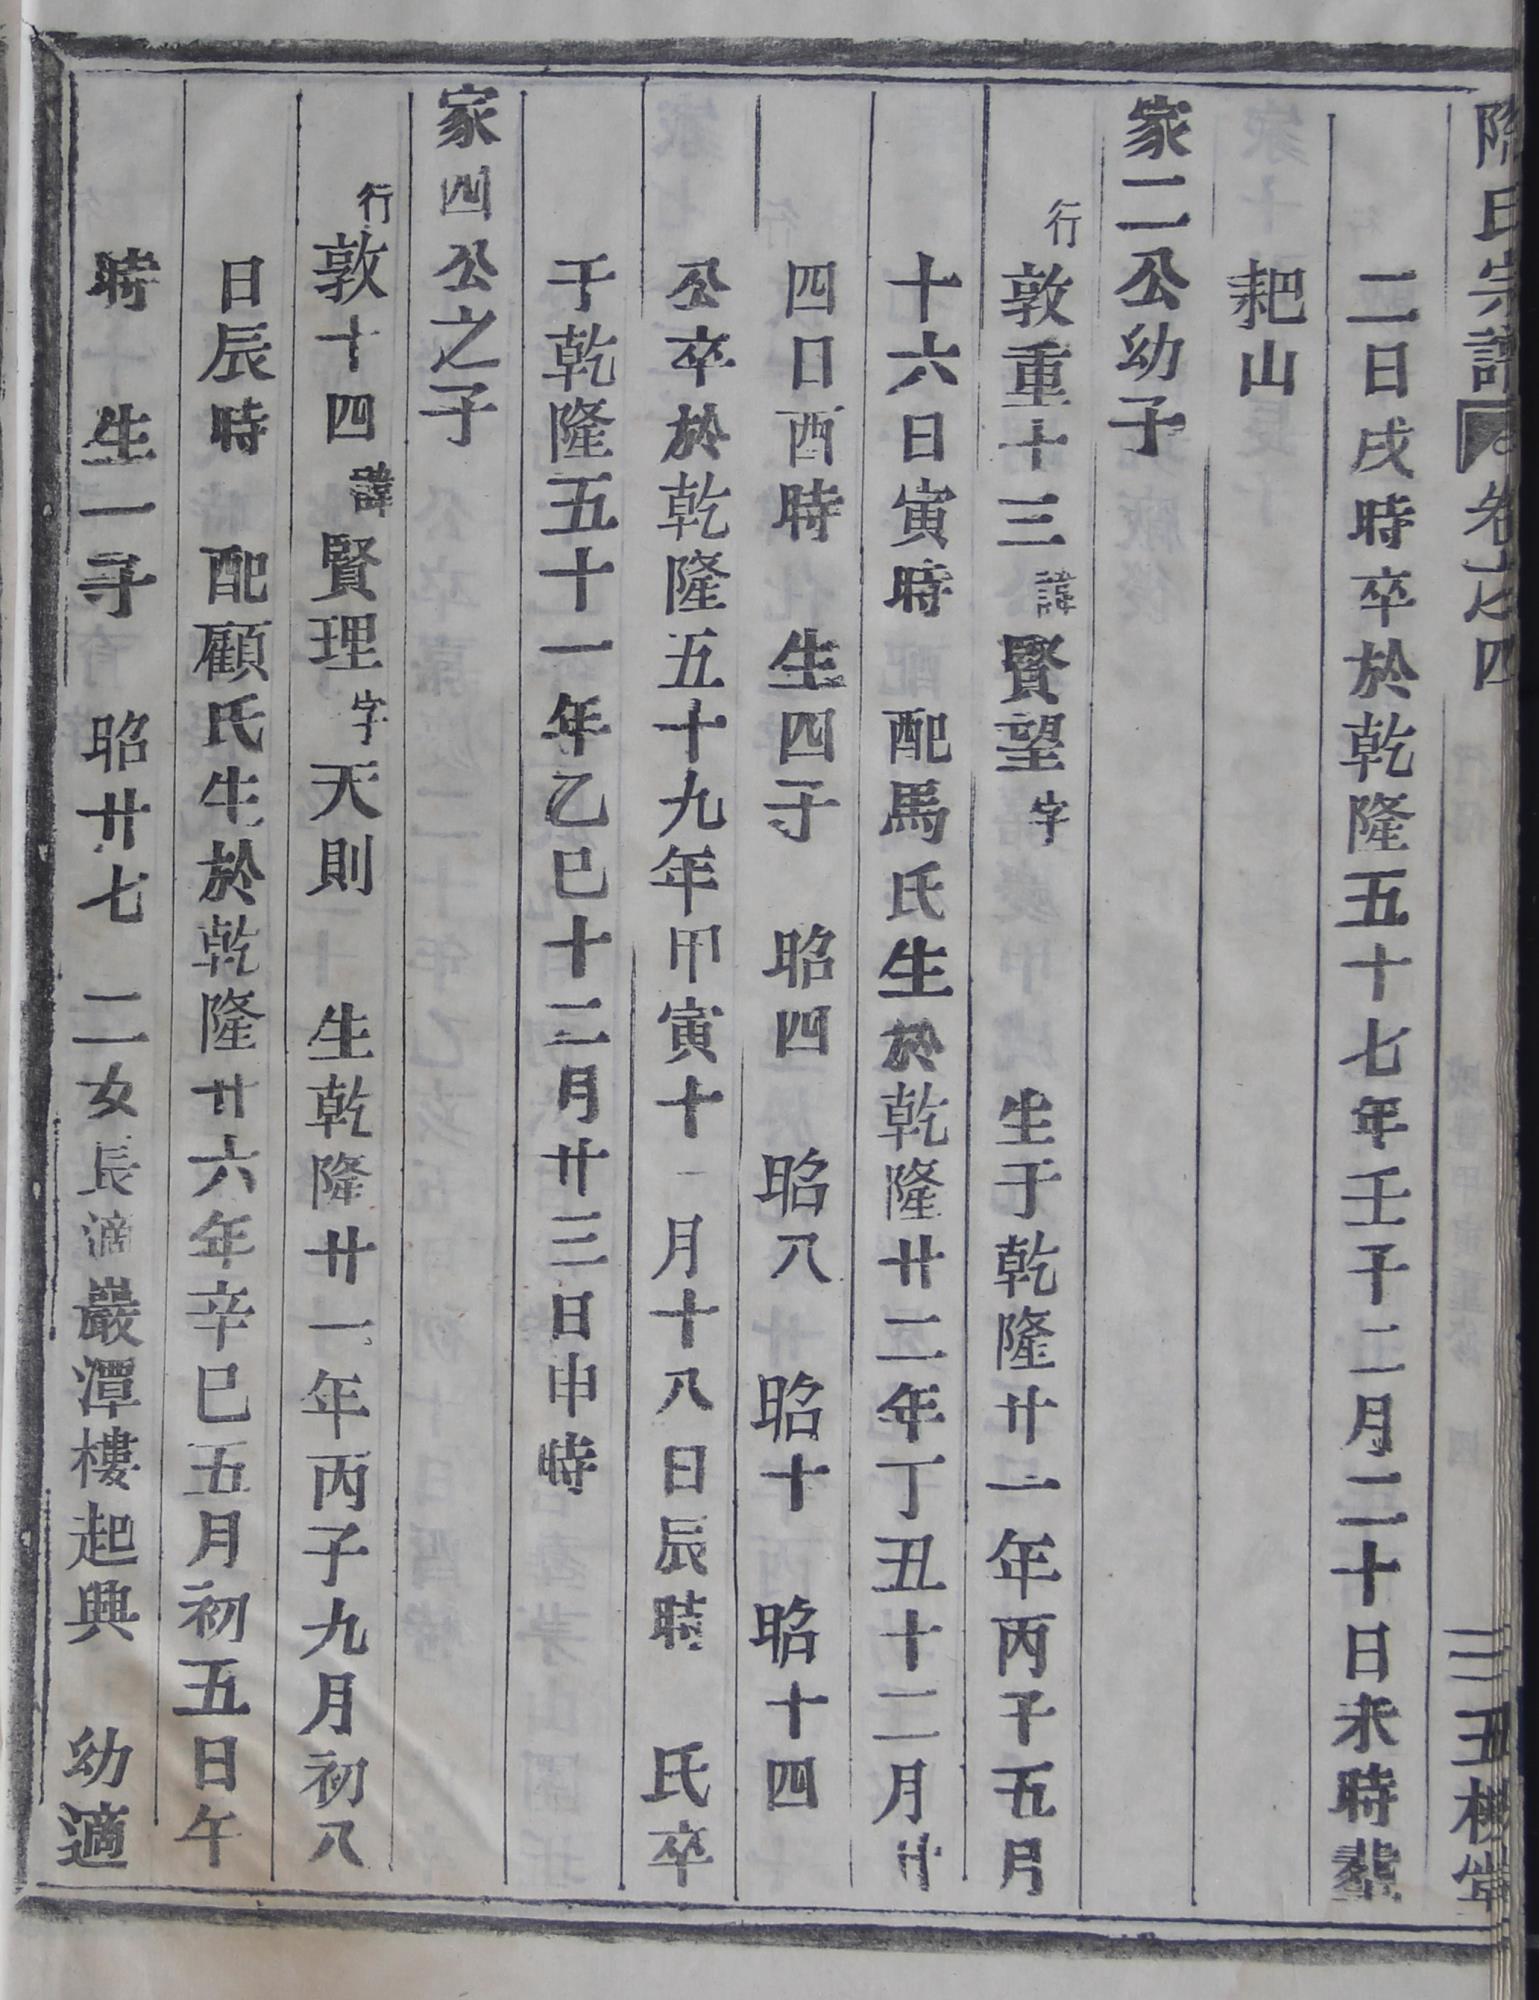 陳氏宗譜 卷之四 三五樓堂
二日戌時卒於乾隆五十七年壬子二月二十日未時塟
耙山
家二公幼子
行敦重十三諱賢望字 生于乾隆廿一年丙子五月
十六日寅時 配馬氏生於乾隆廿二年丁丑十二月廿
四日酉時 生四子 昭四 昭八 昭十 昭十四
公卒於乾隆五十九年甲寅十一月十八日辰時 氏卒
于乾隆五十一年乙巳十二月廿三日申時
家四公之子
行敦十四諱賢理字天則 生乾隆廿一年丙子九月初八
日辰時 配顧氏生於乾隆廿六年辛巳五月初五日午
時 生一子 昭廿七 二女長適巖潭樓起興 幼適